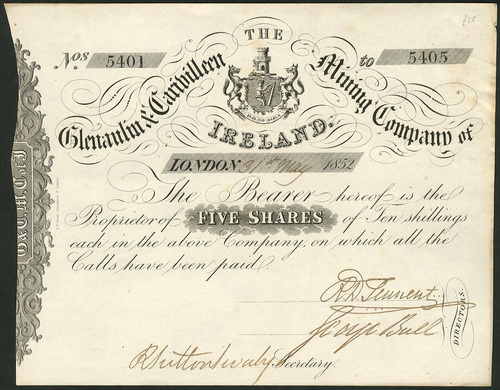 THE
Nos 5401 to 5405
Glenaulin & Carivilleen Mining Company of
IRELAND.
LONDON, 1852
The Bearer hereof is the
Proprietor of FIVE SHARES of Ten shillings
each in the above Company, on which all the
Calls have been paid.
George Bull
DIRECTORS.
Secretary.